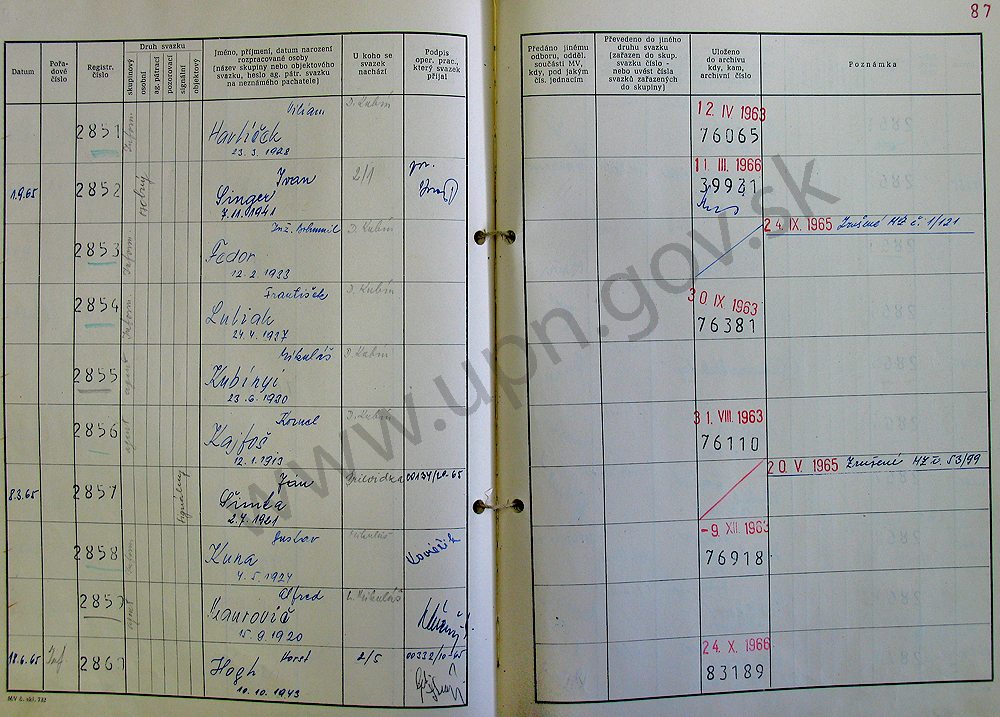 87
Datum
Pořadové číslo
Registr. číslo
Druh svazku
skupinový
osobní
ag. pátrací
pozorovací
signální
objektový
Jméno, příjmení, datum narození
rozpracované osoby
(název skupiny nebo objektového
svazku, heslo ag. pátr. svazku
na neznámého pachatele)
U koho se
svazek
nachází
Podpis
oper. prac.,
který svazek
přijal
Předáno jinému
odboru, odděl.
součásti MV,
kdy, pod jakým
čís. jednacím
Převedeno do jiného
druhu svazku
(zařazen do skup.
svazku číslo -
nebo uvést čísla
svazků zařazených
do skupiny)
Uloženo
do archivu
kdy, kam,
archivní číslo
Poznámka
2851 Inform. Viliam D. Kubín 12. IV 1963
Havlíček 76065
23. 3. 1928
1.9.65 2852 osobný Ivan 2/1 11. III. 1966
Singer 39931
7.11.1941
2853 Inform. Inž. Bohumil D. Kubín 24. IX. 1965 Zrušené HZ č. 1/121
Fedor
12 2 1933
2854 Inform. František D. Kubín 30 IX 1963
Lubiak 76381
24. 4. 1937
2855 agent Mikuláš D. Kubín
Kubínyi
23. 6. 1930
2856 agent Kornel D. Kubín 31. VIII. 1963
Kajfoš 76110
12. 1. 1913
8.3.65 2857 signálny Ján Prievidza 00134/20-65 20. V. 1965 Zrušené HZ č. 53/99
Šimka
2. 7. 1921
2858 Inform. Gustav Mikuláš -9. XII. 1963
Kuna 76918
4. 5. 1924
2859 agent Alfred L. Mikuláš
Maurovič
15. 9. 1920
18.6.65 Inf. 2860 Horst 2/5 00332/10-65 24. X. 1966
Hogh 83189
10. 10. 1943
www.upn.gov.sk